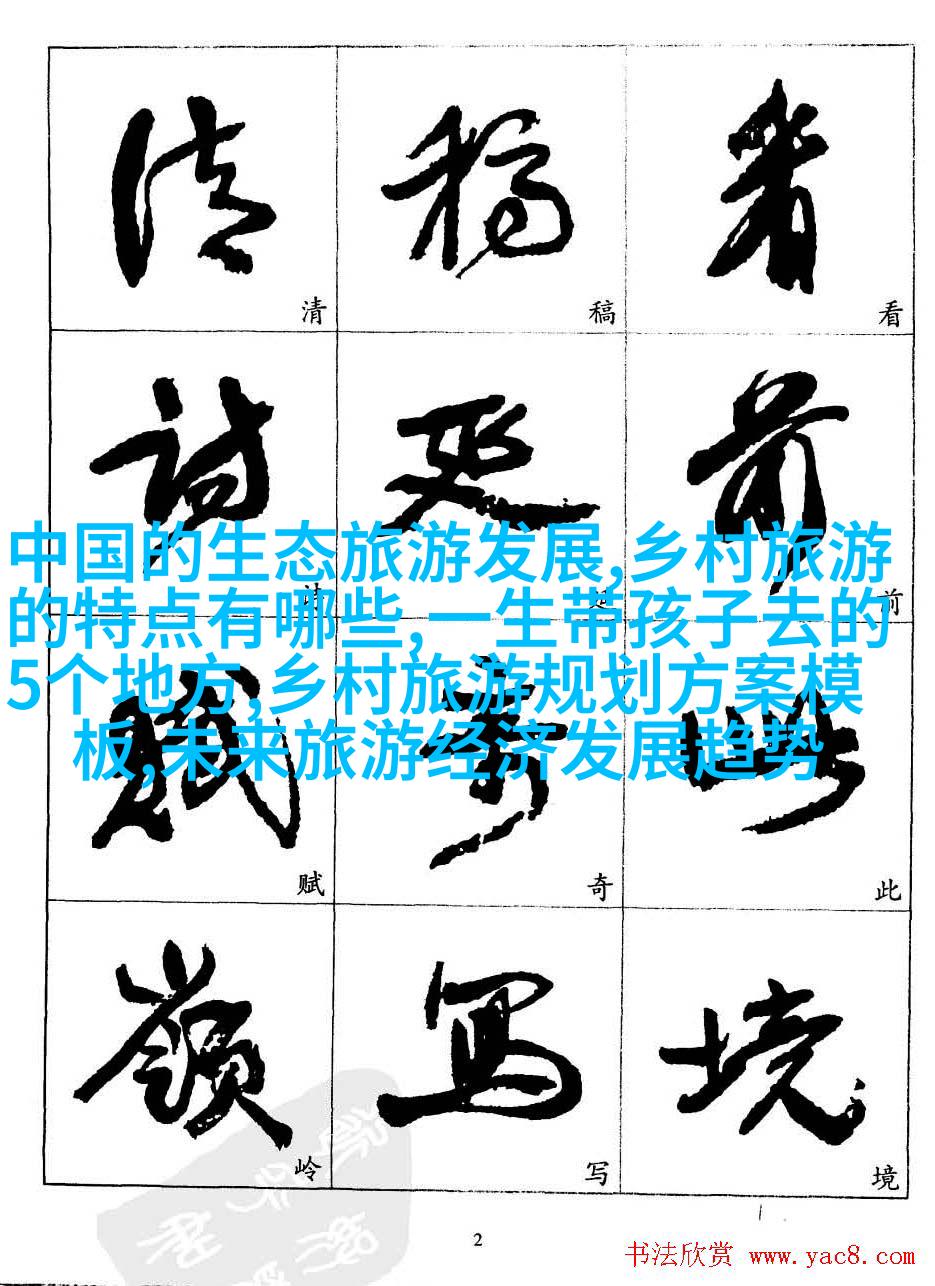 清 稿 看
诗 延 前
中国的生态旅游发展,乡村旅游
的特点有哪些,一生带孩子去的
5个地方,乡村旅游规划方案模
板,未来旅游经济发展趋势
赋 奇 此
岭 写 境
2
书法欣赏 www.yac8.com